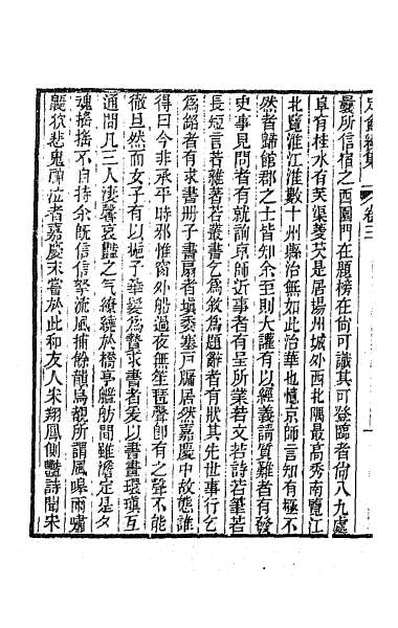 定盦續集 卷三
曩所信宿之西園門在題榜在尚可識其可登臨者尚八九處
阜有桂水有芙渠菱芡是居揚州城外西北隅最高秀南覽江
北覽淮江淮數十州縣治無如此冶華也憶京師言知有極不
然者歸館郡之士皆知余至則大讙有以經義請質難者有發
史事見問者有就詢京師近事者有呈所業若文若詩若筆若
長短言若雜著若叢書乞為敘為題辭者有狀其先世事行乞
為銘者有求書冊子書扇者填委塞戶牖居然嘉慶中故態誰
得曰今非承平時邪惟窗外船過夜無笙琶聲卽有之聲不能
徹旦然而女子有以梔子華髮為贄求書者爰以書畫環瑱互
通問凡三人淒馨哀豔之气繚繞於橋亭艦舫間雖澹定是夕
魂搖搖不自持余旣信信拏流風捕餘韻烏覩所謂風嘷雨嘯
鼯狖悲鬼神泣者嘉慶末嘗於此和友人宋翔鳳側豔詩聞宋